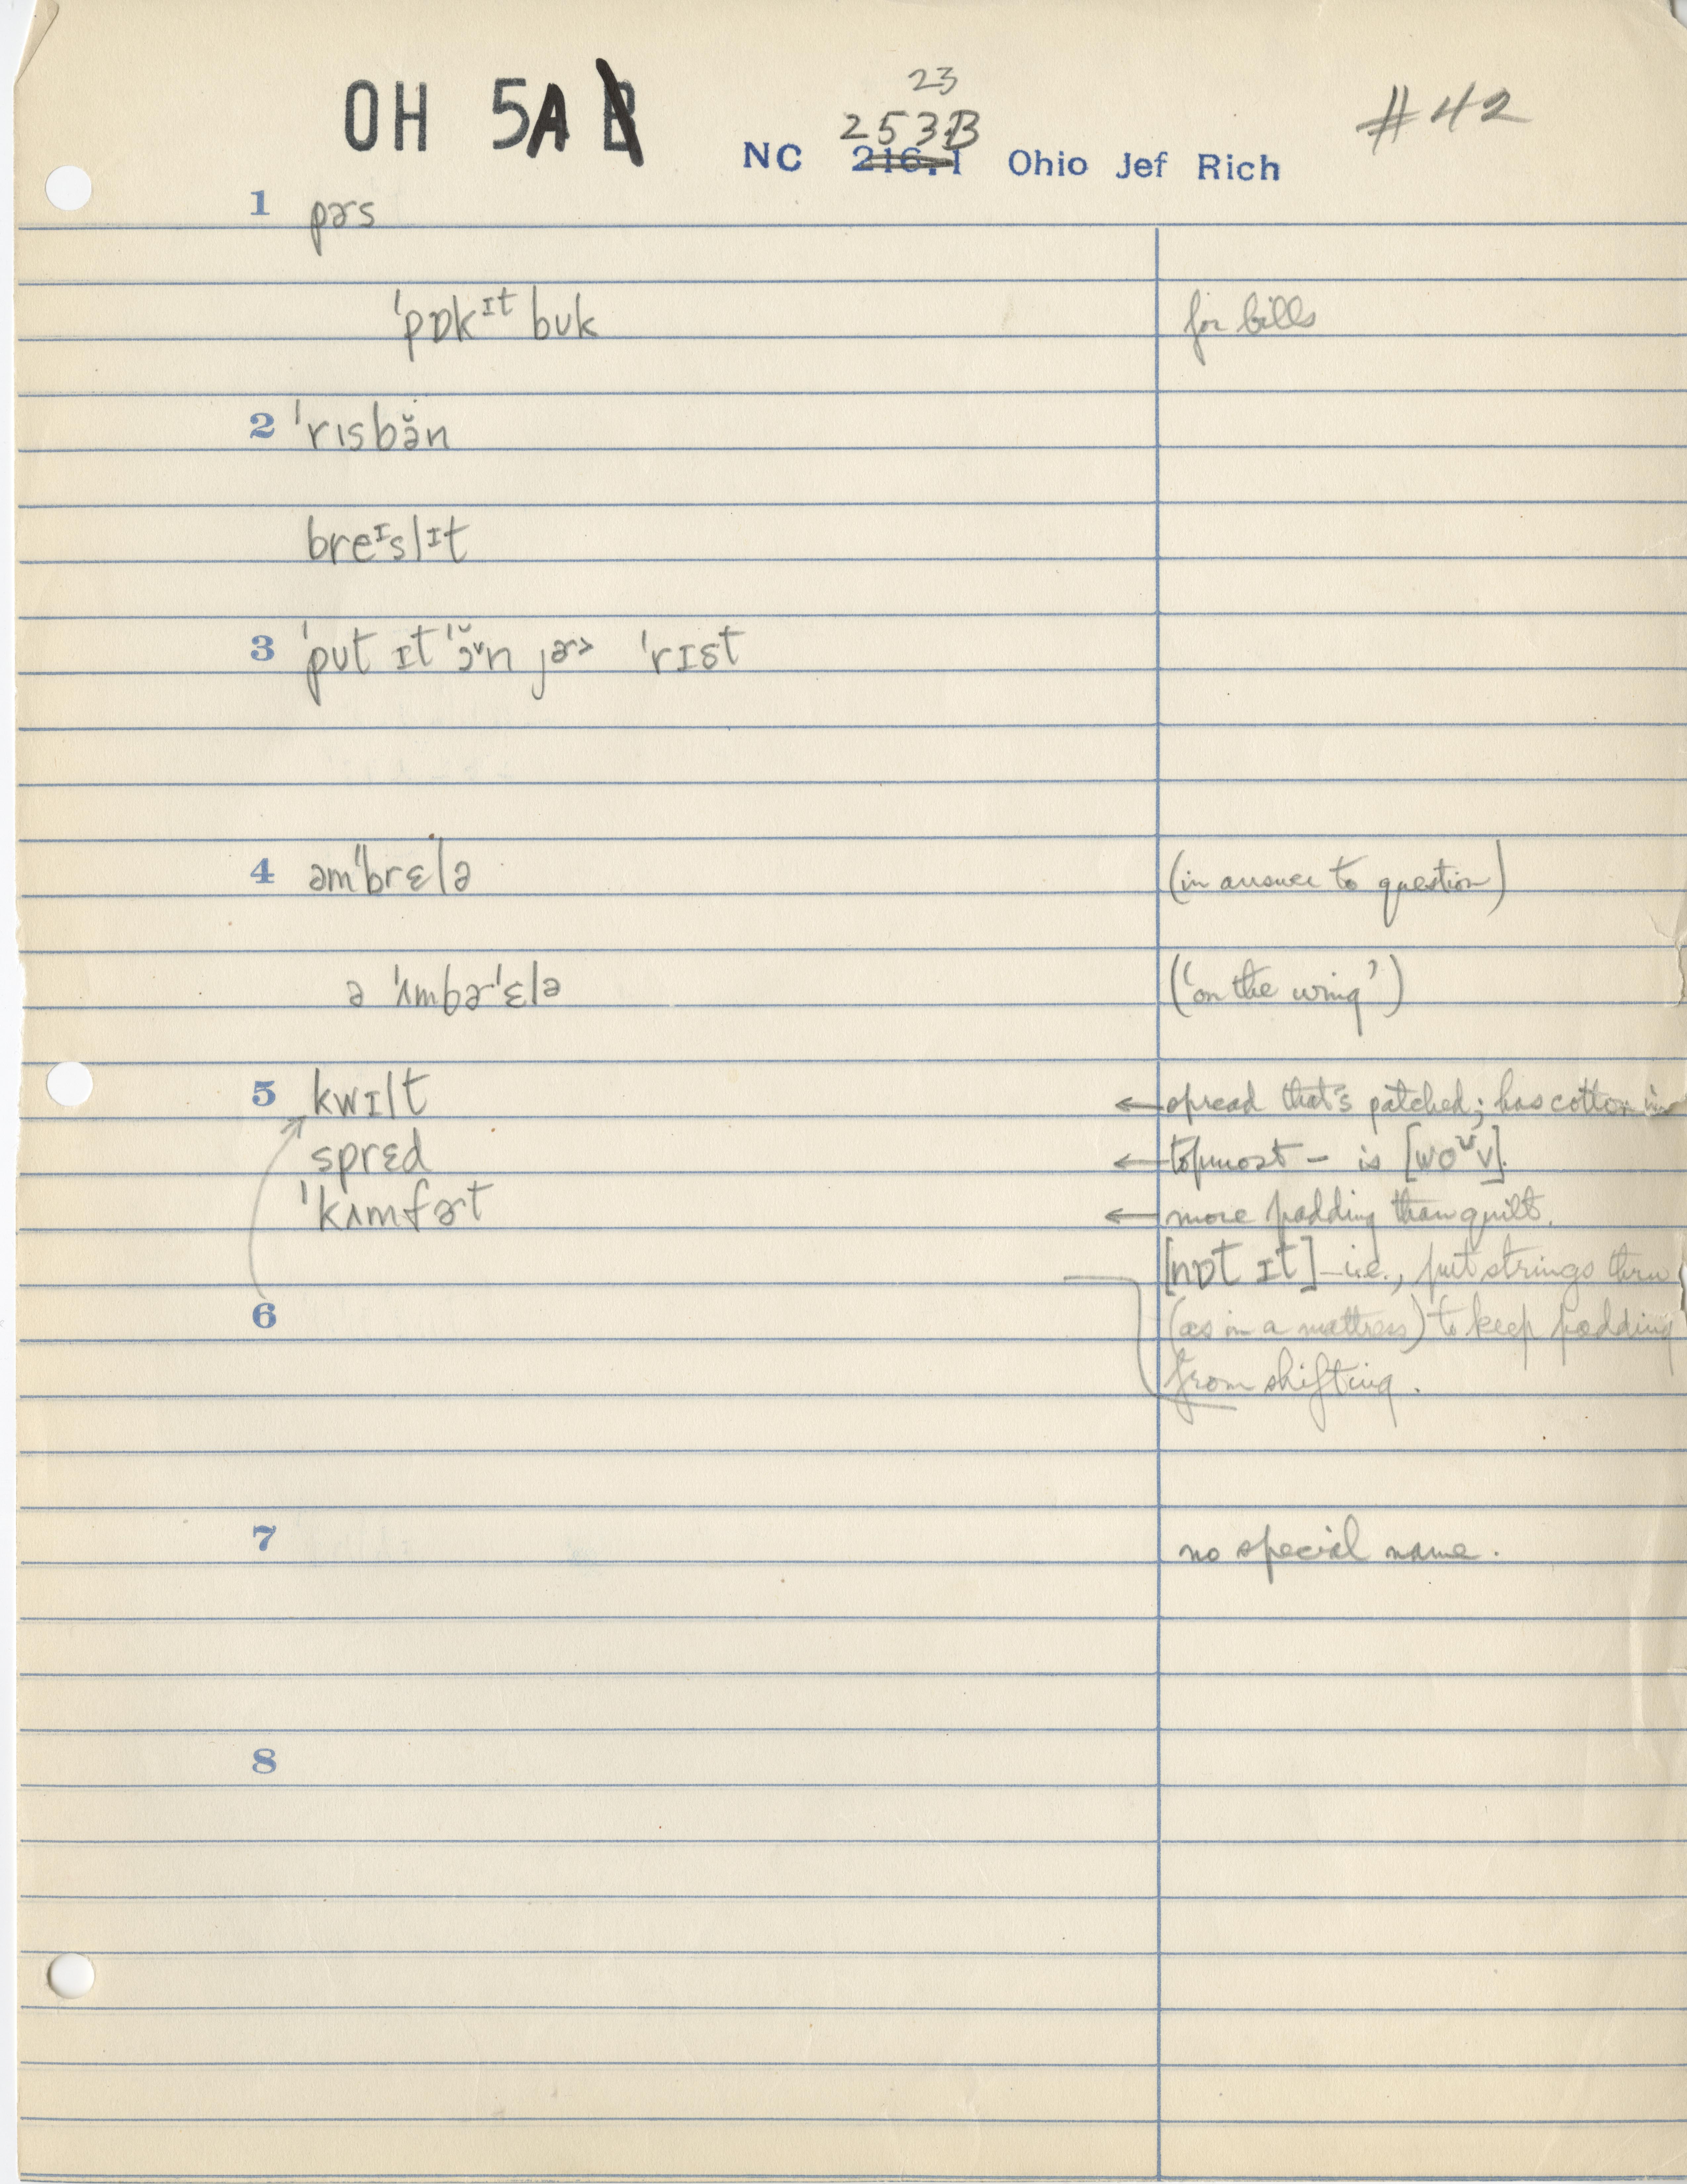 23
OH 5A B 253B #42
NC 216.1 Ohio Jef Rich
1 pɚs
ˈpɒkᶦᵗ bʊk for bills
2 ˈrɪsbə̆n
breᶦslɪt
3 ˈpʊt ɪt ˈɔ̆ᶹn jɚ> ˈrɪst
4 əmˈbrɛlə (in answer to question)
ə ˈʌmbɚˈɛlə (‘on the wing’)
5 kwɪlt ← spread that's patched; has cotton in
sprɛd ← topmost – is [woᶹv].
ˈkʌmfɚt ← more padding than quilt.
[nɒt ɪt] – i.e., put strings thru
6 (as in a mattress) to keep padding
from shifting.
7 no special name.
8